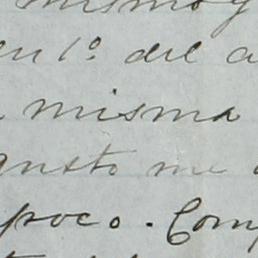 mismo y
en 1º. del a
misma
gusto me
poco. Com